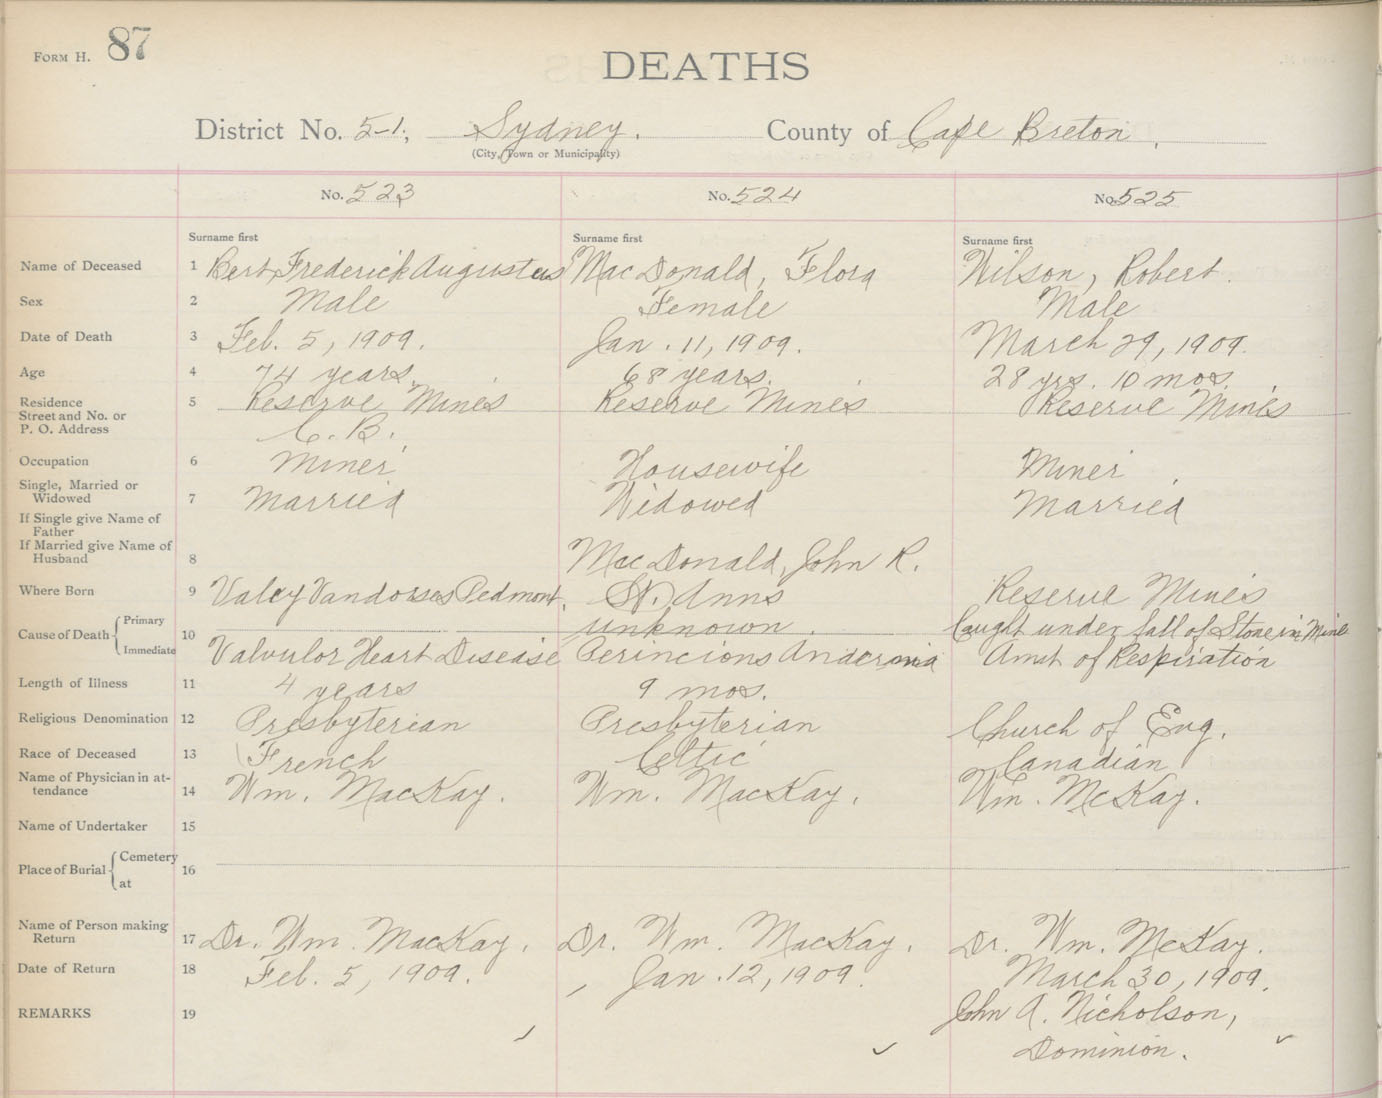 FORM H. 87
DEATHS
District No. 5-1, Sydney. County of Cape Breton,
(City, Town or Municipality)
No. 523 No. 524 No. 525
Surname first Surname first Surname first
Name of Deceased 1 Bert, Frederick Augustus MacDonald, Flora Wilson, Robert.
Sex 2 Male Female Male
Date of Death 3 Feb. 5, 1909. Jan. 11, 1909. March 29, 1909.
Age 4 74 years. 68 years. 28 yrs. 10 mos.
Residence 5 Reserve Mines Reserve Mines Reserve Mines
Street and No. or
P. O. Address C. B.
Occupation 6 Miner Housewife Miner
Single, Married or
Widowed 7 Married Widowed Married
If Single give Name of
Father
If Married give Name of
Husband 8 MacDonald, John R.
Where Born 9 Valey Vandorses Pedmont. St. Anns Reserve Mines
Cause of Death { Primary 10 unknown. Caught under fall of Stone in Mine
Immediate Valvulor Heart Disease Perincions Anaemia Amst of Respiration
Length of Illness 11 4 years 9 mos.
Religious Denomination 12 Presbyterian Presbyterian Church of Eng.
Race of Deceased 13 French Celtic Canadian
Name of Physician in at-
tendance 14 Wm. MacKay. Wm. MacKay. Wm. McKay.
Name of Undertaker 15
Place of Burial { Cemetery 16
at
Name of Person making
Return 17 Dr. Wm. MacKay. Dr. Wm. MacKay. Dr. Wm. McKay.
Date of Return 18 Feb. 5, 1909. Jan. 12, 1909. March 30, 1909.
REMARKS 19 John A. Nicholson,
Dominion.